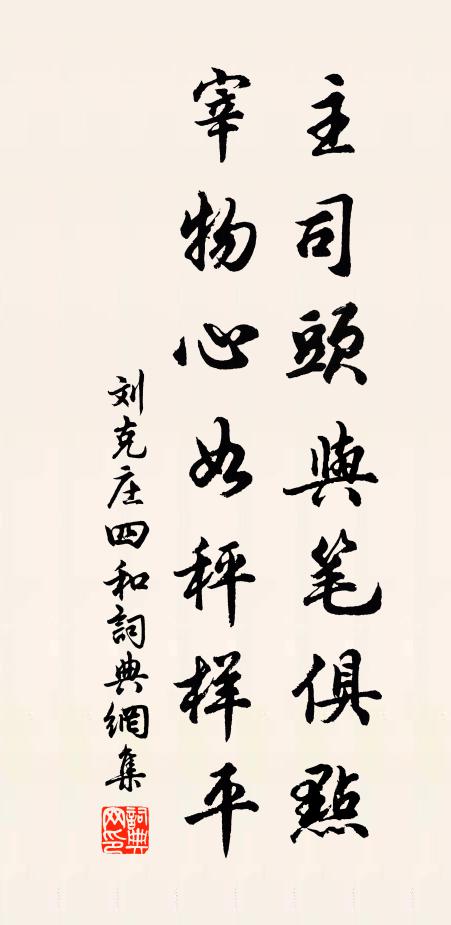 主司頭與笔俱點
宰物心如秤样平
刘克庄四和詞典網集
詞典网印